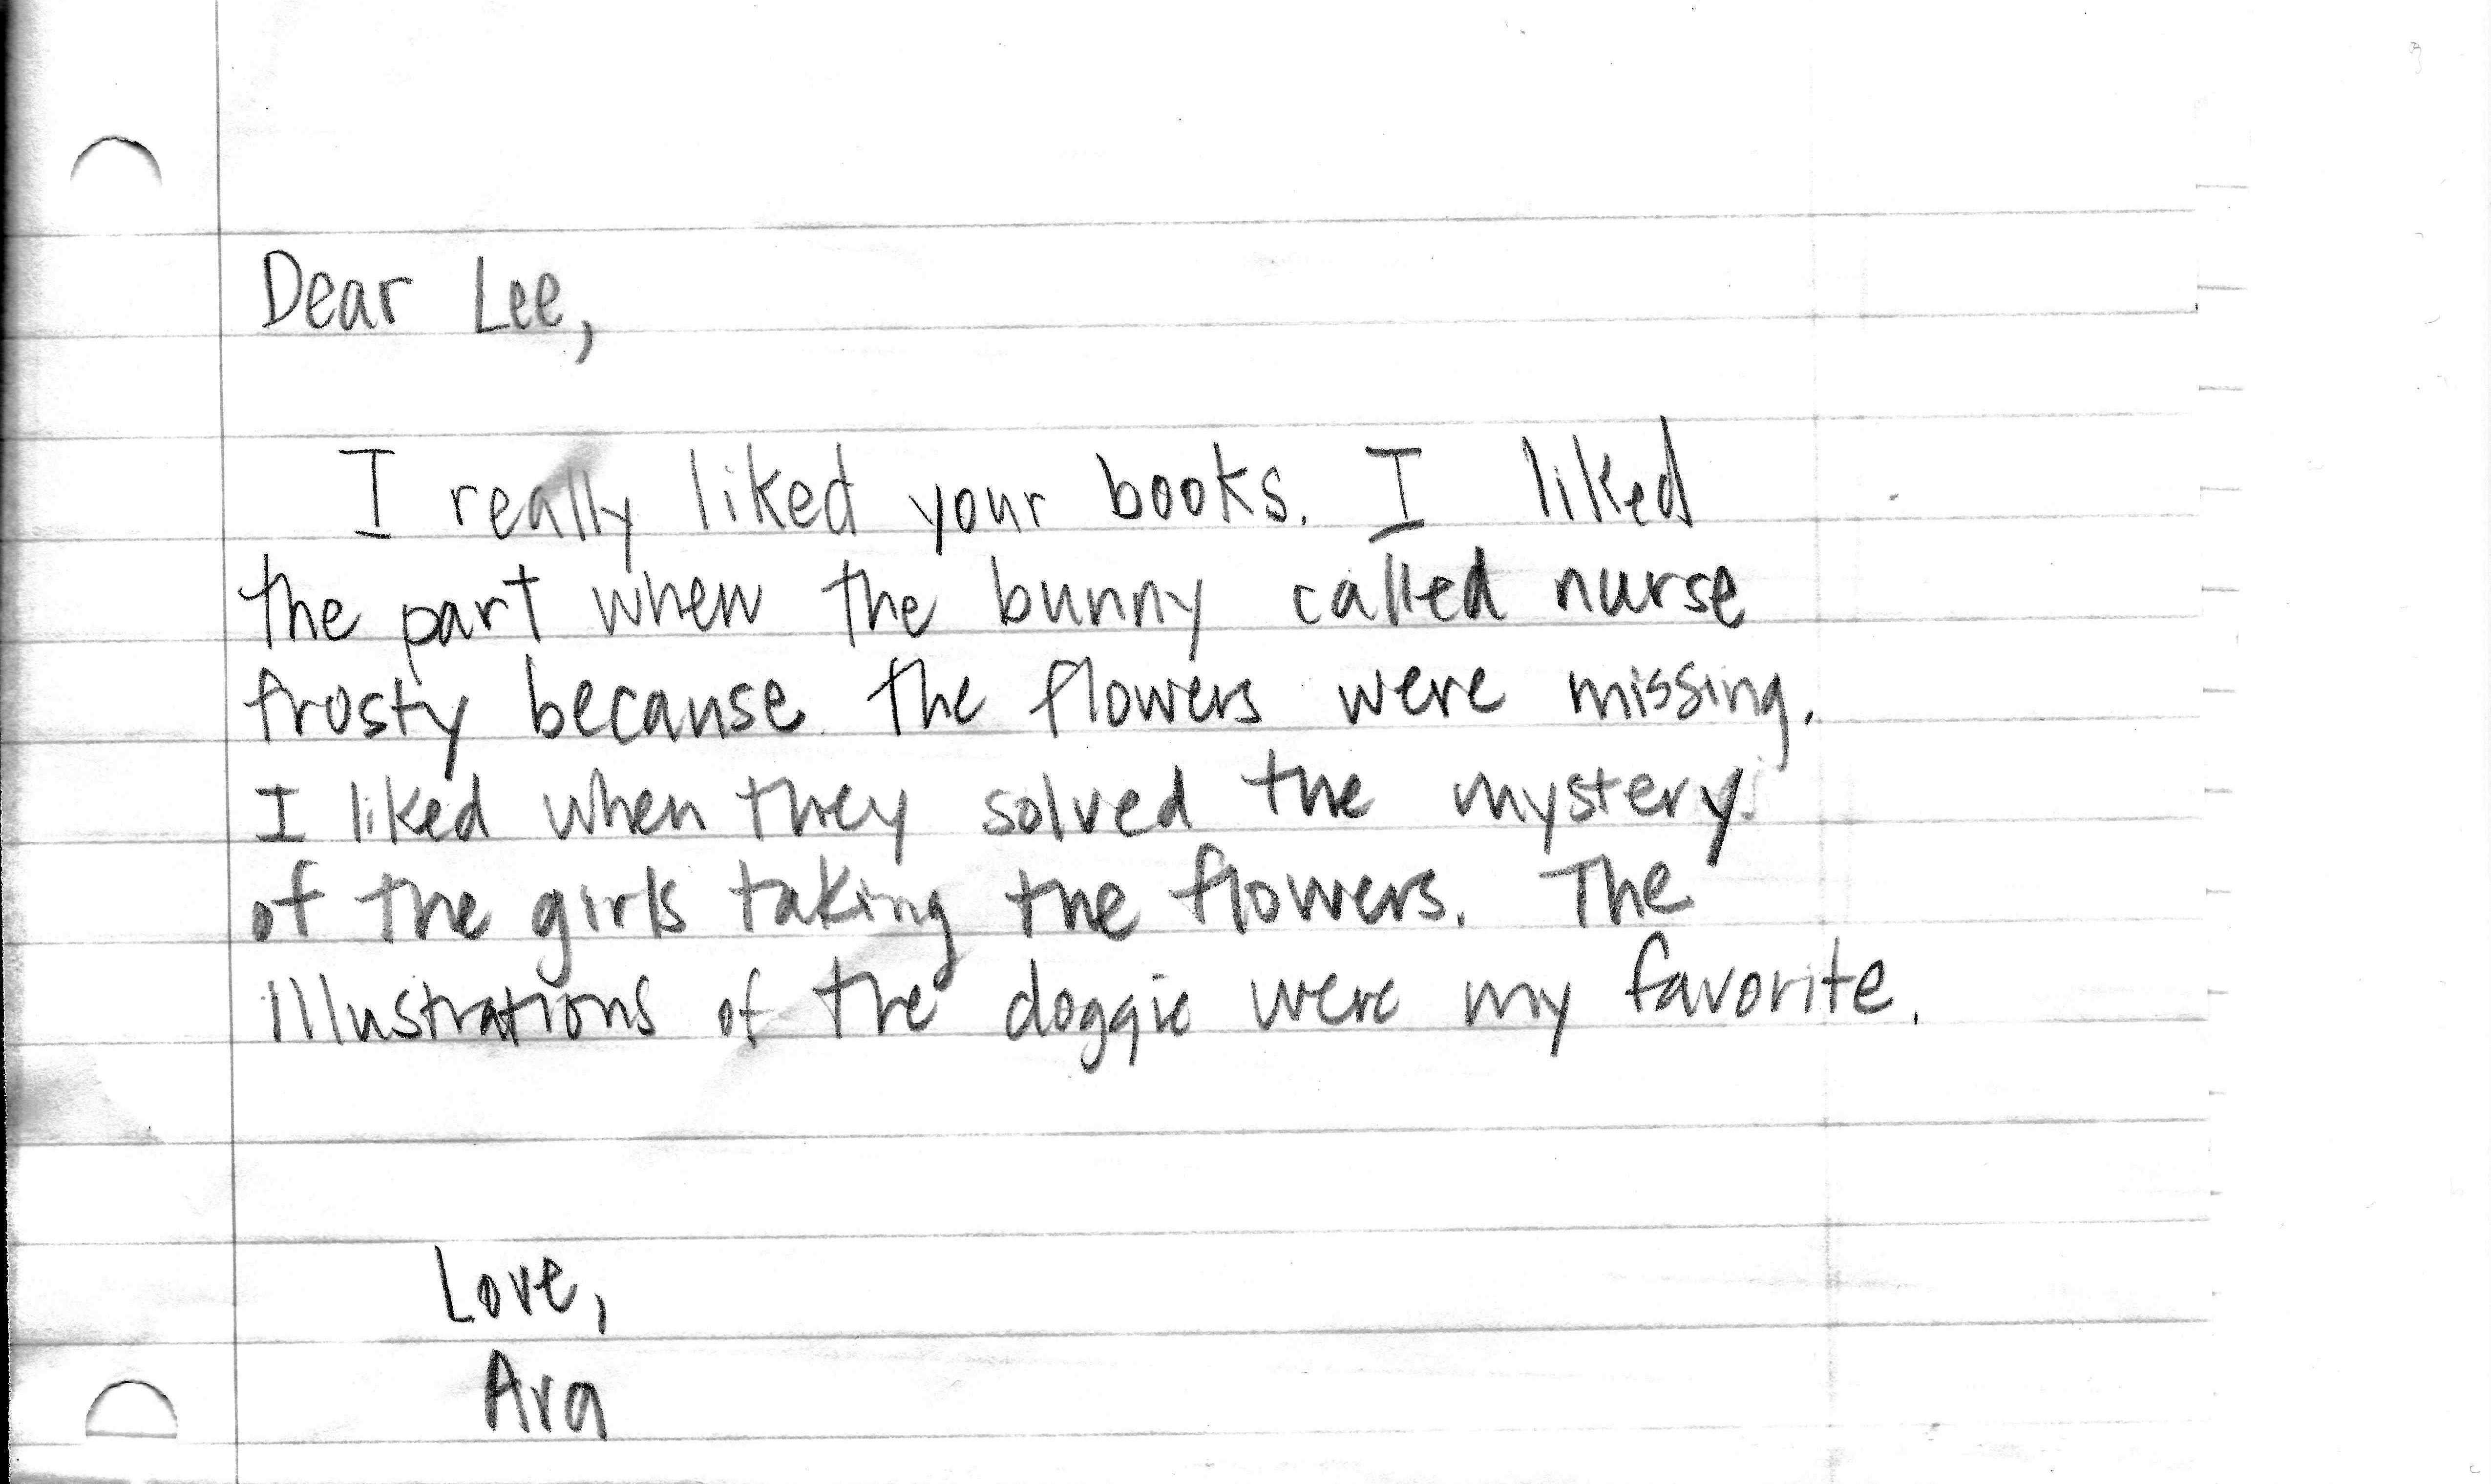 Dear Lee,
I really liked your books. I liked
the part when the bunny called nurse
frosty because the flowers were missing.
I liked when they solved the mystery
of the girls taking the flowers. The
illustrations of the doggie were my favorite.
Love,
Ava